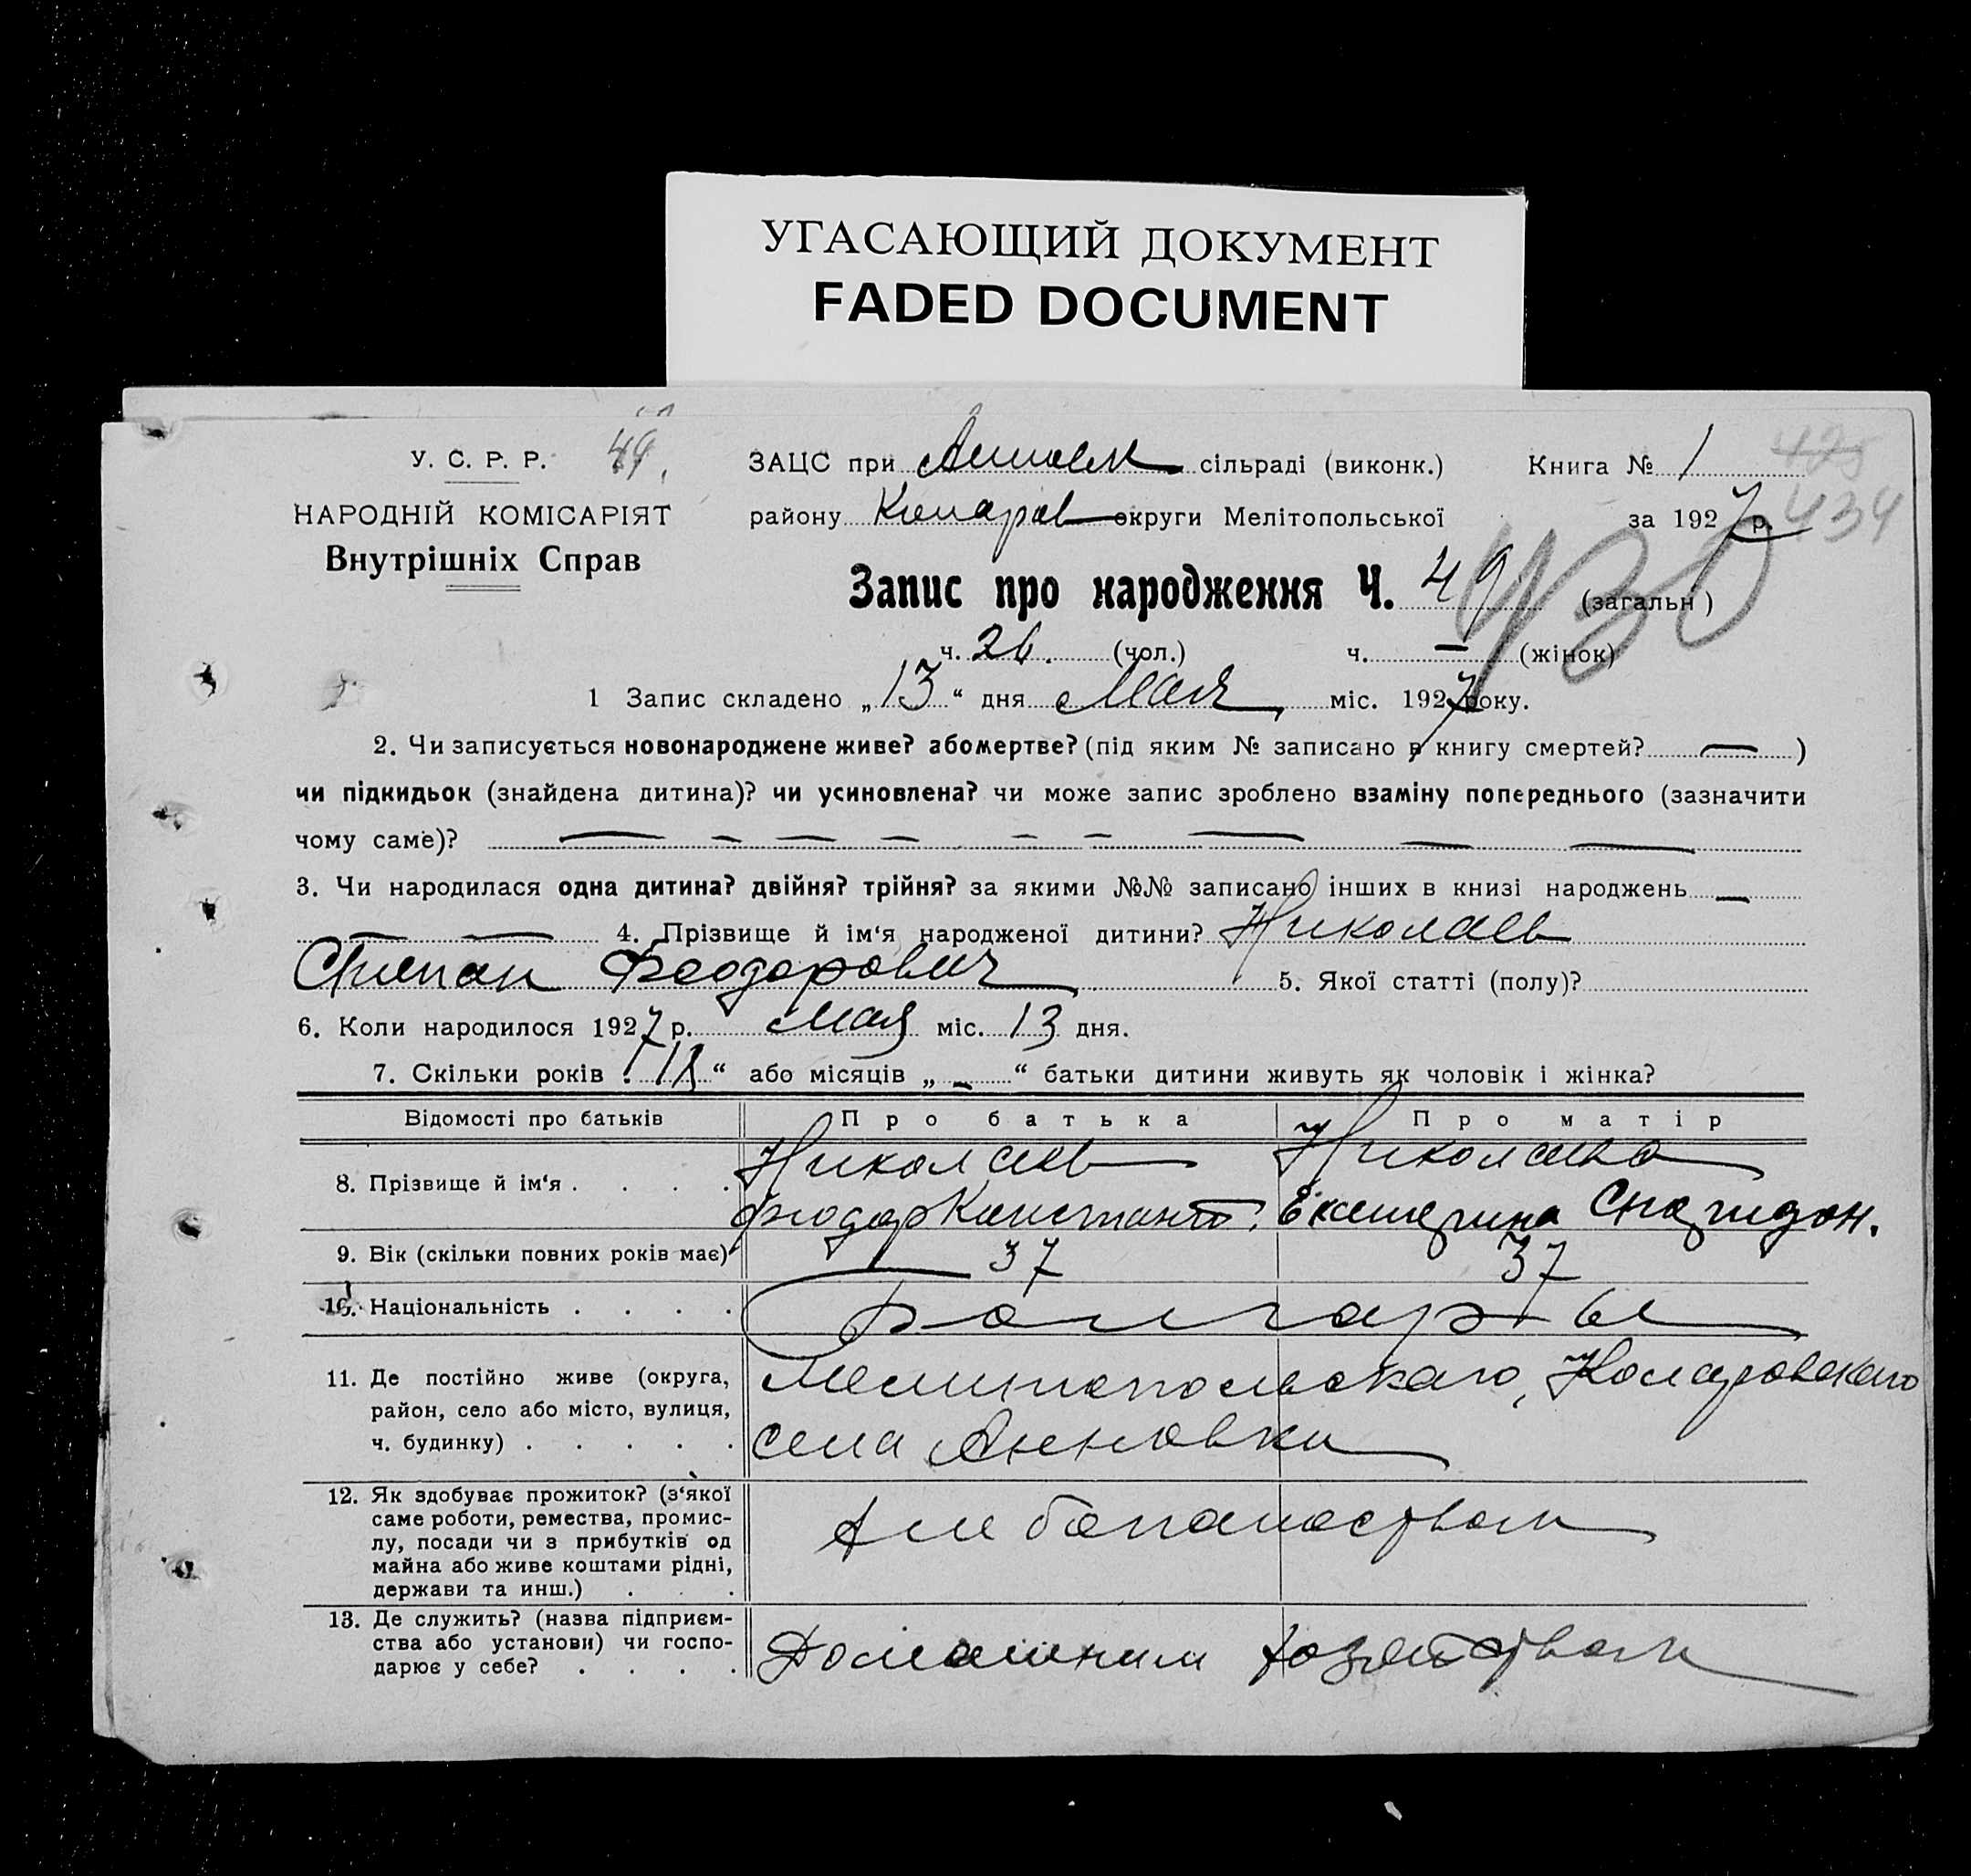 УГАСАЮЩИЙ ДОКУМЕНТ
FADED DOCUMENT
У. С. Р. Р. 49.
НАРОДНІЙ КОМІСАРІЯТ
Внутрішніх Справ
ЗАЦС при сільраді (виконк.) Книга № 1 425
району округи Мелітопольської за 1927 р. 434
Запис про народження Ч. 49 (загальн) 430
ч. 26. (чол.) ч. — (жінок)
1 Запис складено „13“ дня Мая міс. 1927 року.
2. Чи записується новонароджене живе? або мертве? (під яким № записано в книгу смертей? — )
чи підкидьок (знайдена дитина)? чи усиновлена? чи може запис зроблено взаміну попереднього (зазначити
чому саме)? — — — — — — — — —
3. Чи народилася одна дитина? двійня? трійня? за якими №№ записано інших в книзі народжень —
— — 4. Прізвище й ім‘я народженої дитини? Николаев
Степан Феодорович 5. Якої статті (полу)?
6. Коли народилося 1927 р. Мая міс. 13 дня.
7. Скільки років „18“ або місяців „ – “ батьки дитини живуть як чоловік і жінка?
Відомості про батьків Про батька Про матір
8. Прізвище й ім‘я . . . . Николаев Николаева
Феодор Констант. Екатерина Спиридон.
9. Вік (скільки повних років має) 37 37
10. Національність . . . . Болгары
11. Де постійно живе (округа,
район, село або місто, вулиця,
ч. будинку) . . . . .
Мелитопольскаго, Комаровскаго
села Анновки
12. Як здобуває прожиток? (з‘якої
саме роботи, ремества, промис-
лу, посади чи з прибутків од
майна або живе коштами рідні,
держави та инш.) . . .
Хлебопашеством
13. Де служить? (назва підприєм-
ства або установи) чи госпо-
дарює у себе? . . . .
Домашним хозяйством